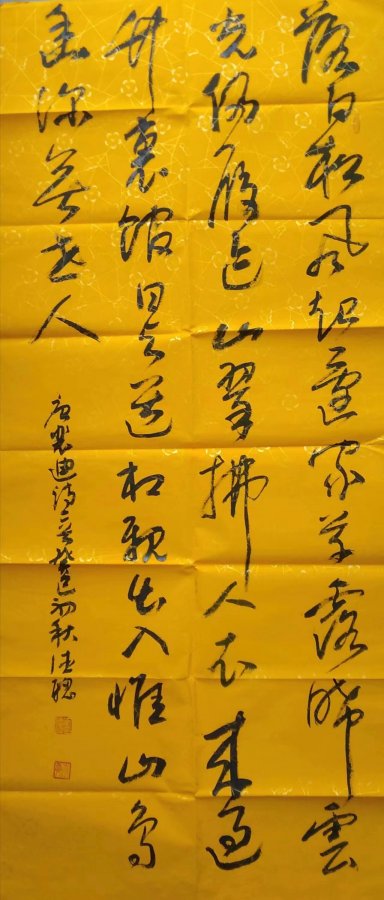 落日松風起還家草露晞雲
光侵履迹山翠拂人衣來過
竹裏館日與道相親出入惟山鳥
幽深無世人
唐裴迪詩二首初秋